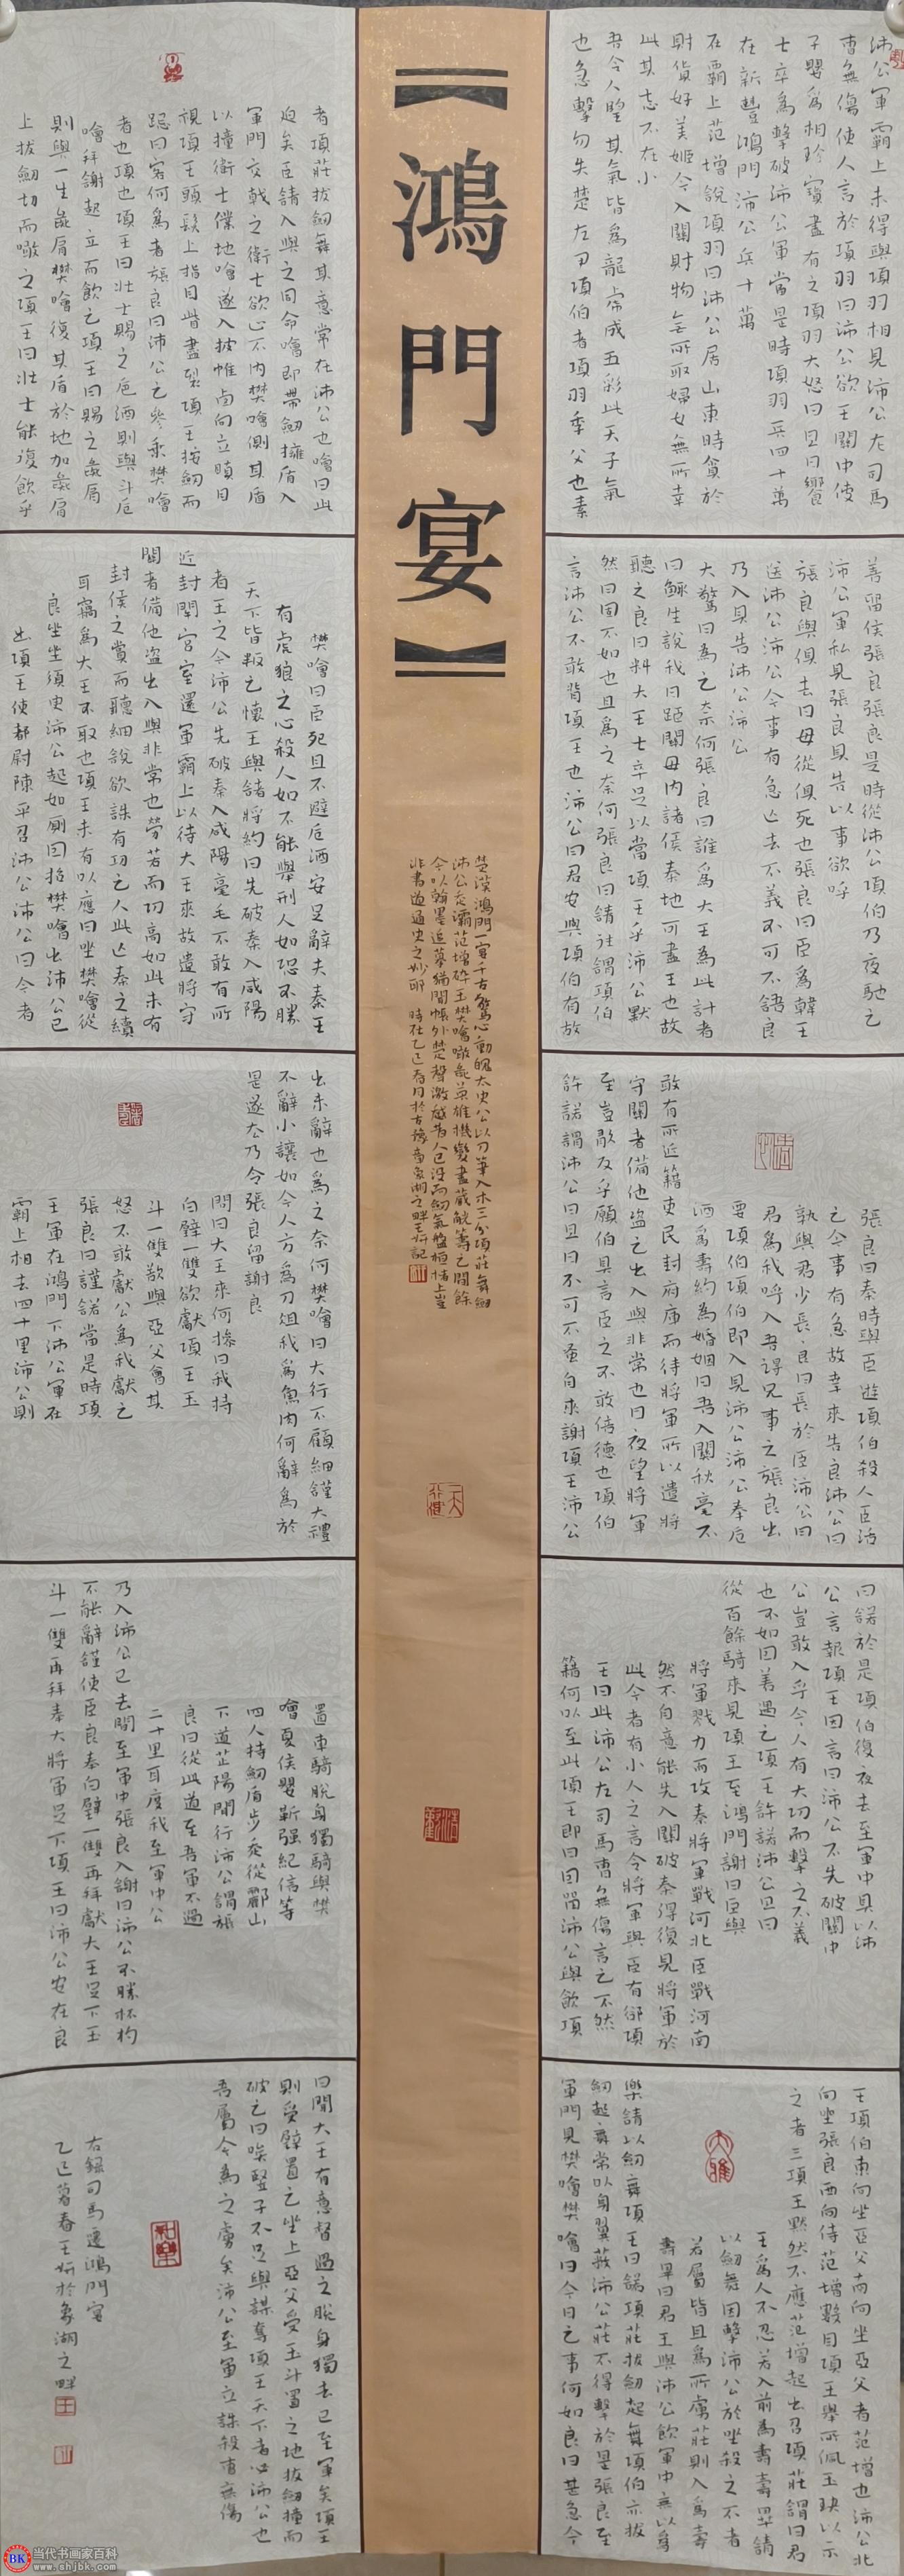 沛公軍霸上未得與項羽相見沛公左司馬
曹無傷使人言於項羽曰沛公欲王關中使
子嬰為相珍寶盡有之項羽大怒曰旦日饗
士卒為擊破沛公軍當是時項羽兵四十萬
在新豐鴻門沛公兵十萬
在霸上范增說項羽曰沛公居山東時貪於
財貨好美姬今入關財物無所取婦女無所幸
此其志不在小
吾令人望其氣皆為龍虎成五彩此天子氣
也急擊勿失楚左尹項伯者項羽季父也素
善留侯張良張良是時從沛公項伯乃夜馳之
沛公軍私見張良具告以事欲呼
張良與俱去曰毋從俱死也張良曰臣為韓王
送沛公沛公今事有急亡去不義不可不語良
乃入具告沛公沛公
大驚曰為之奈何張良曰誰為大王為此計者
曰鯫生說我曰距關毋內諸侯秦地可盡王也故
聽之良曰料大王士卒足以當項王乎沛公默
然曰固不如也且為之奈何張良曰請往謂項伯
言沛公不敢背項王也沛公曰君安與項伯有故
張良曰秦時與臣遊項伯殺人臣活
之今事有急故幸來告良沛公曰
孰與君少長良曰長於臣沛公曰
君為我呼入吾得兄事之張良出
要項伯項伯即入見沛公沛公奉卮
酒為壽約為婚姻曰吾入關秋毫不
敢有所近籍吏民封府庫而待將軍所以遣將
守關者備他盜之出入與非常也日夜望將軍
至豈敢反乎願伯具言臣之不敢倍德也項伯
許諾謂沛公曰旦日不可不蚤自來謝項王沛公
曰諾於是項伯復夜去至軍中具以沛
公言報項王因言曰沛公不先破關中
公豈敢入乎今人有大功而擊之不義
也不如因善遇之項王許諾沛公旦日
從百餘騎來見項王至鴻門謝曰臣與
將軍戮力而攻秦將軍戰河北臣戰河南
然不自意能先入關破秦得復見將軍於
此今者有小人之言令將軍與臣有郤項
王曰此沛公左司馬曹無傷言之不然
籍何以至此項王即日因留沛公與飲項
王項伯東向坐亞父南向坐亞父者范增也沛公北
向坐張良西向侍范增數目項王舉所佩玉玦以示
之者三項王默然不應范增起出召項莊謂曰君
王為人不忍若入前為壽壽畢請
以劍舞因擊沛公於坐殺之不者
若屬皆且為所虜莊則入為壽
壽畢曰君王與沛公飲軍中無以為
樂請以劍舞項王曰諾項莊拔劍起舞項伯亦拔
劍起舞常以身翼蔽沛公莊不得擊於是張良至
軍門見樊噲樊噲曰今日之事何如良曰甚急今
大雅
【鴻門宴】
楚漢鴻門一宴千古驚心動魄太史公以刀筆入木三分項莊舞劍
沛公走灞范增碎玉樊噲啖彘英雄機變盡藏觥籌之間餘
今以翰墨追摹猶聞帳外楚聲激越昔人已沒而劍氣盤桓楮上豈
非書道通史之妙耶 時在乙巳春月於古豫章象湖之畔王圻記
者項莊拔劍舞其意常在沛公也噲曰此
迫矣臣請入與之同命噲即帶劍擁盾入
軍門交戟之衛士欲止不內樊噲側其盾
以撞衛士僕地噲遂入披帷西向立瞋目
視項王頭髮上指目眥盡裂項王按劍而
跽曰客何為者張良曰沛公之參乘樊噲
者也項王曰壯士賜之卮酒則與斗卮
噲拜謝起立而飲之項王曰賜之彘肩
則與一生彘肩樊噲復其盾於地加彘肩
上拔劍切而啖之項王曰壯士能復飲乎
樊噲曰臣死且不避卮酒安足辭夫秦王
有虎狼之心殺人如不能舉刑人如恐不勝
天下皆叛之懷王與諸將約曰先破秦入咸陽
者王之今沛公先破秦入咸陽毫毛不敢有所
近封閉宮室還軍霸上以待大王來故遣將守
關者備他盜出入與非常也勞苦而功高如此未有
封侯之賞而聽細說欲誅有功之人此亡秦之續
耳竊為大王不取也項王未有以應曰坐樊噲從
良坐坐須臾沛公起如廁因招樊噲出沛公已
出項王使都尉陳平召沛公沛公曰今者
出未辭也為之奈何樊噲曰大行不顧細謹大禮
不辭小讓如今人方為刀俎我為魚肉何辭為於
是遂去乃令張良留謝良
問曰大王來何操曰我持
白璧一雙欲獻項王玉
斗一雙欲與亞父會其
怒不敢獻公為我獻之
張良曰謹諾當是時項
王軍在鴻門下沛公軍在
霸上相去四十里沛公則
置車騎脫身獨騎與樊
噲夏侯嬰靳強紀信等
四人持劍盾步走從酈山
下道芷陽間行沛公謂張
良曰從此道至吾軍不過
二十里耳度我至軍中公
乃入沛公已去間至軍中張良入謝曰沛公不勝杯杓
不能辭謹使臣良奉白璧一雙再拜獻大王足下玉
斗一雙再拜奉大將軍足下項王曰沛公安在良
曰聞大王有意督過之脫身獨去已至軍矣項王
則受璧置之坐上亞父受玉斗置之地拔劍撞而
破之曰唉豎子不足與謀奪項王天下者必沛公也
吾屬今為之虜矣沛公至軍立誅殺曹無傷
和樂
右錄司馬遷鴻門宴
乙巳暮春王圻於象湖之畔
BK
当代书画家百科
www.shjbk.com